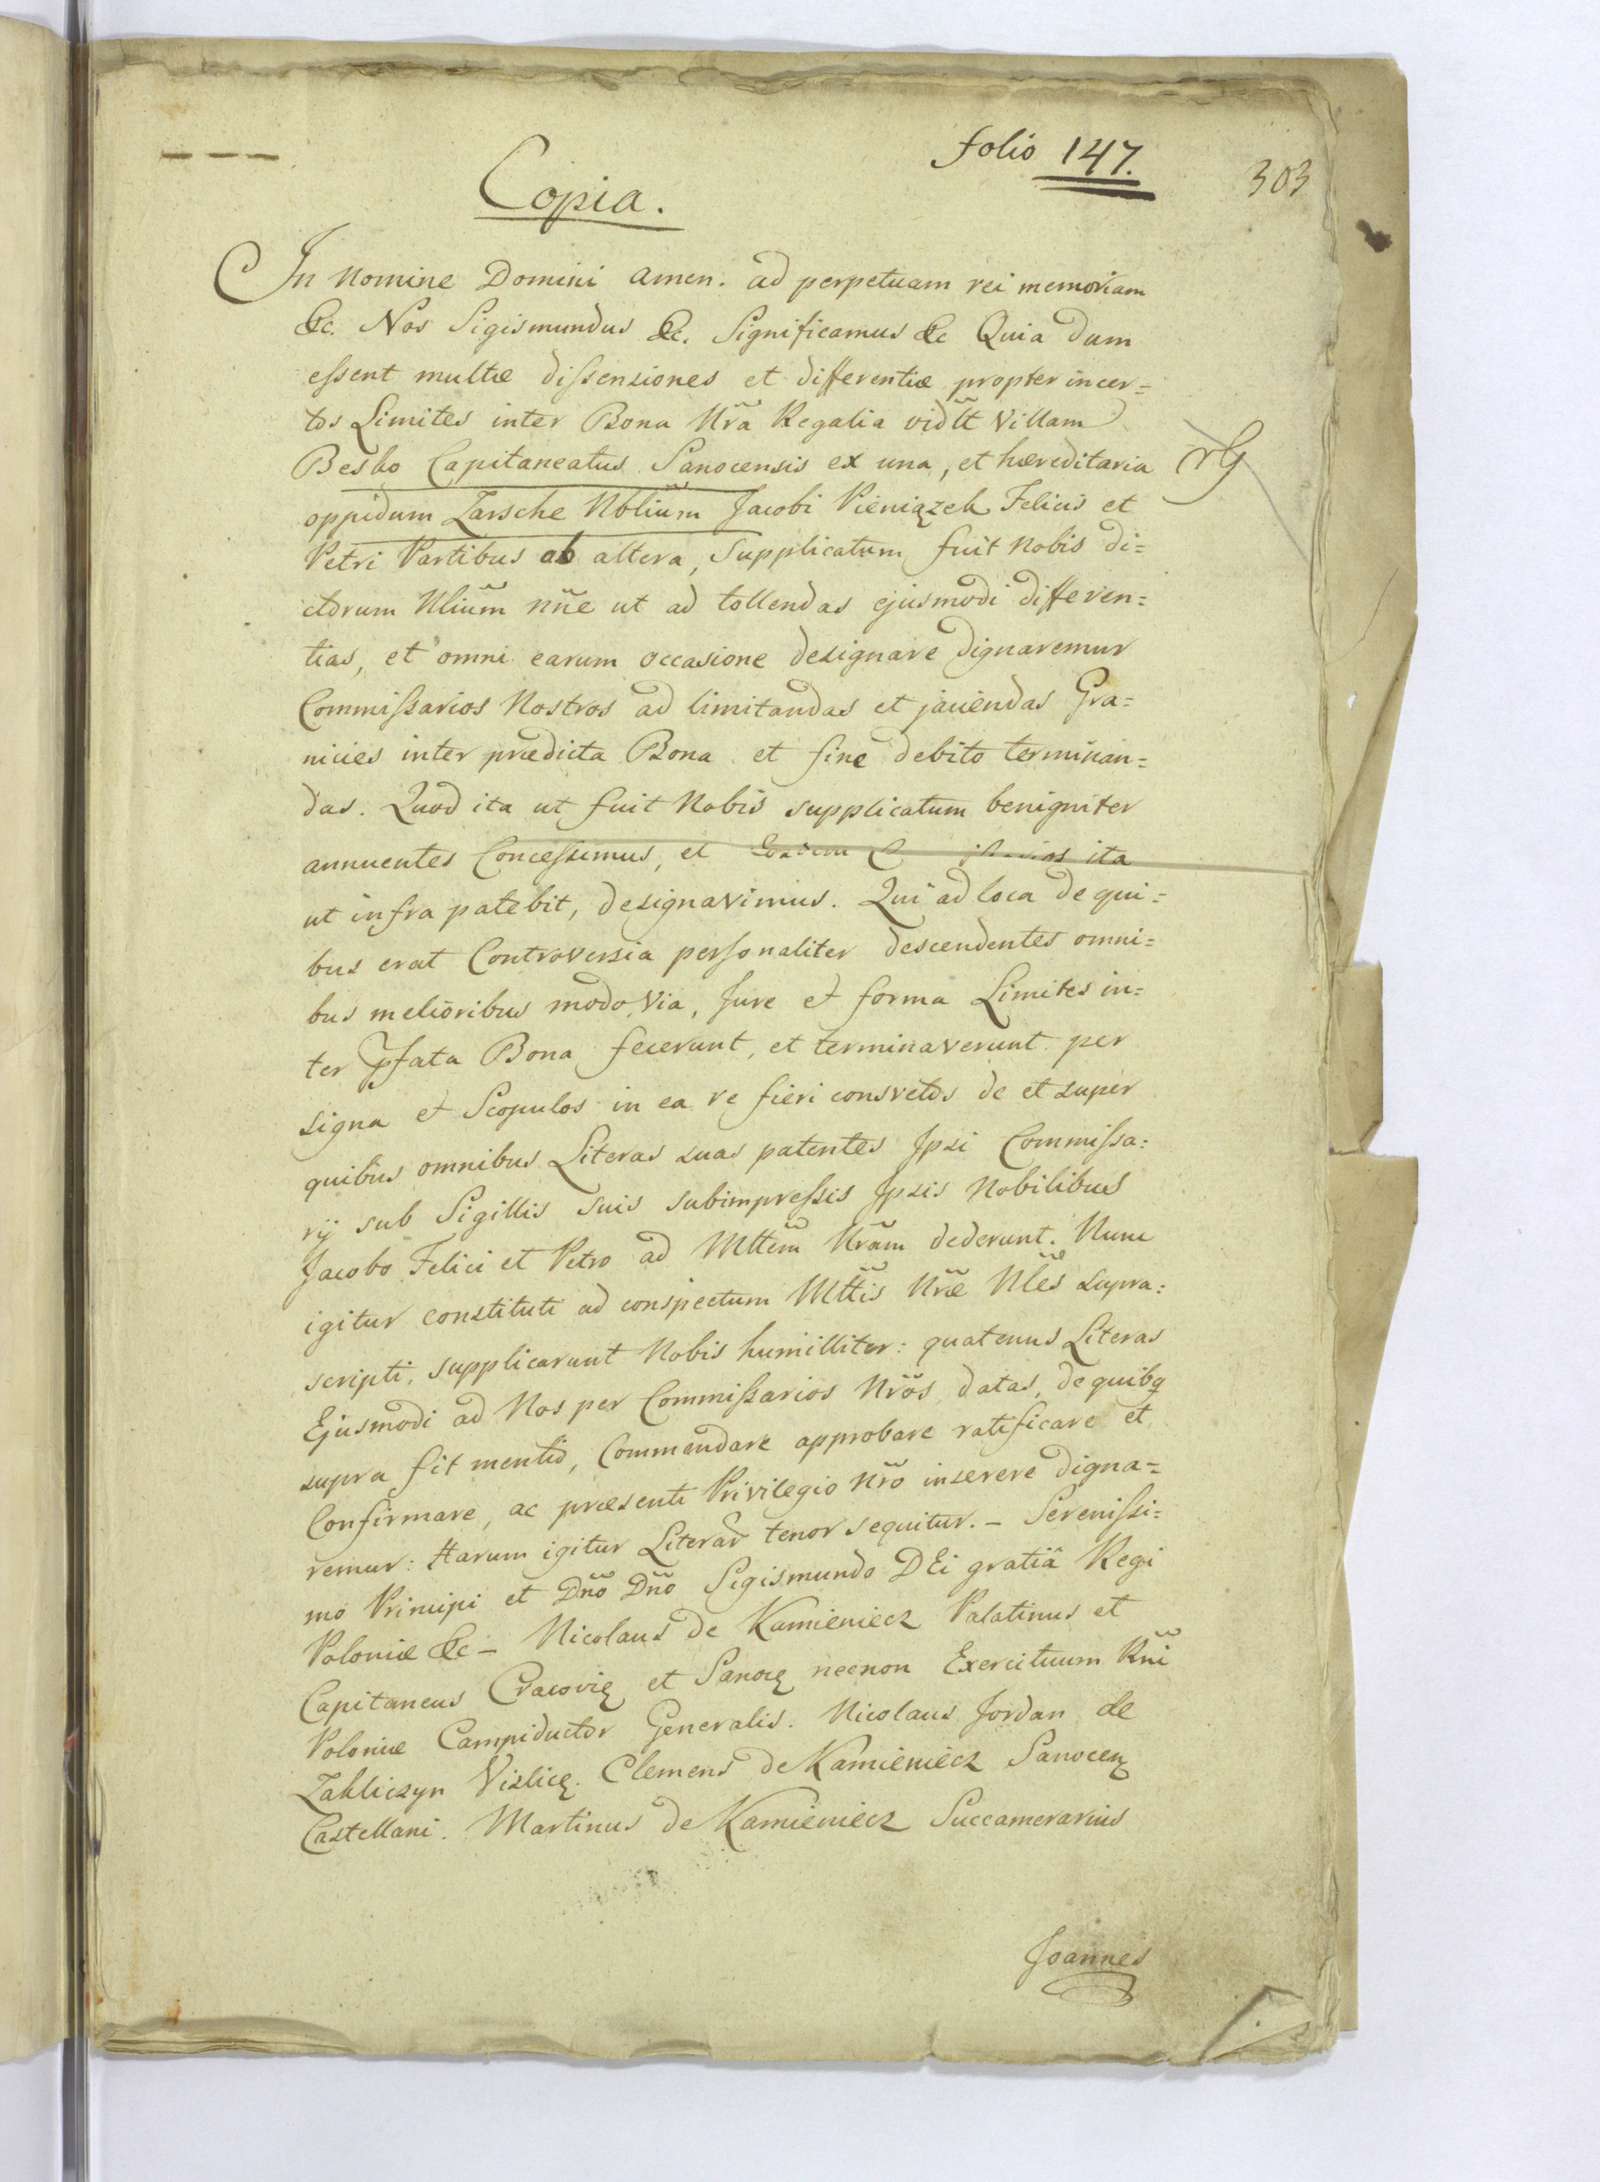 folio 147.
303
Copia.
In Nomine Domini amen. ad perpetuam rei memoriam
&c. Nos Sigismundus &c. Significamus &c Quia dum
essent multæ dissensiones et differentiæ propter incer=
tos Limites inter Bona Nr̃a Regalia vidl̃t Villam
Besko Capitaneatus Sanocensis ex una, et hæreditaria
oppidum Zarsche Nbliũm Jacobi Pieniązek Felicis et
Petri Partibus ab altera, supplicatum fuit Nobis di=
ctorum Nliũm nñe ut ad tollendas ejusmodi differen=
tias, et omni earum occasione designare dignaremur
Commissarios Nostros ad limitandas et jaciendas Gra=
nicies inter prædicta Bona et fine debito terminan=
das. Quod ita ut fuit Nobis supplicatum benigniter
annuentes Concessimus, et ita
ut infra patebit, designavimus. Qui ad loca de qui=
bus erat Controversia personaliter descendentes omni=
bus melioribus modo, Via, Jure et forma Limites in=
ter pfata Bona fecerunt, et terminaverunt per
signa et Scopulos in ea re fieri consvetos de et super
quibus omnibus Literas suas patentes Ipsi Commissa=
rij sub Sigillis suis subimpressis Ipsis Nobilibus
Jacobo, Felici et Petro ad Mttem̃ Nrãm dederunt. Nunc
igitur constituti ad conspectum Mtt̃is Nræ̃ Nlẽs supra=
scripti, supplicarunt Nobis humilliter: quatenus Literas
Ejusmodi ad Nos per Commissarios Nrõs datas, de quibq
supra fit mentio, Commendare approbare ratificare et
Confirmare, ac præsenti Privilegio Nrõ inserere digna=
remur: Harum igitur Literar̃ tenor sequitur. – Serenissi=
mo Principi et Dnõ Dnõ Sigismundo DEi gratiâ Regi
Poloniæ &c – Nicolaus de Kamieniecz Palatinus et
Capitaneus Cracovię et Sanocę necnon Exercituum Rnĩ
Poloniæ Campiductor Generalis. Nicolaus Jordan de
Zakliczyn Vislicę. Clemens de Kamieniecz Sanocen
Castellani. Martinus de Kamieniecz Succamerarius
Joannes